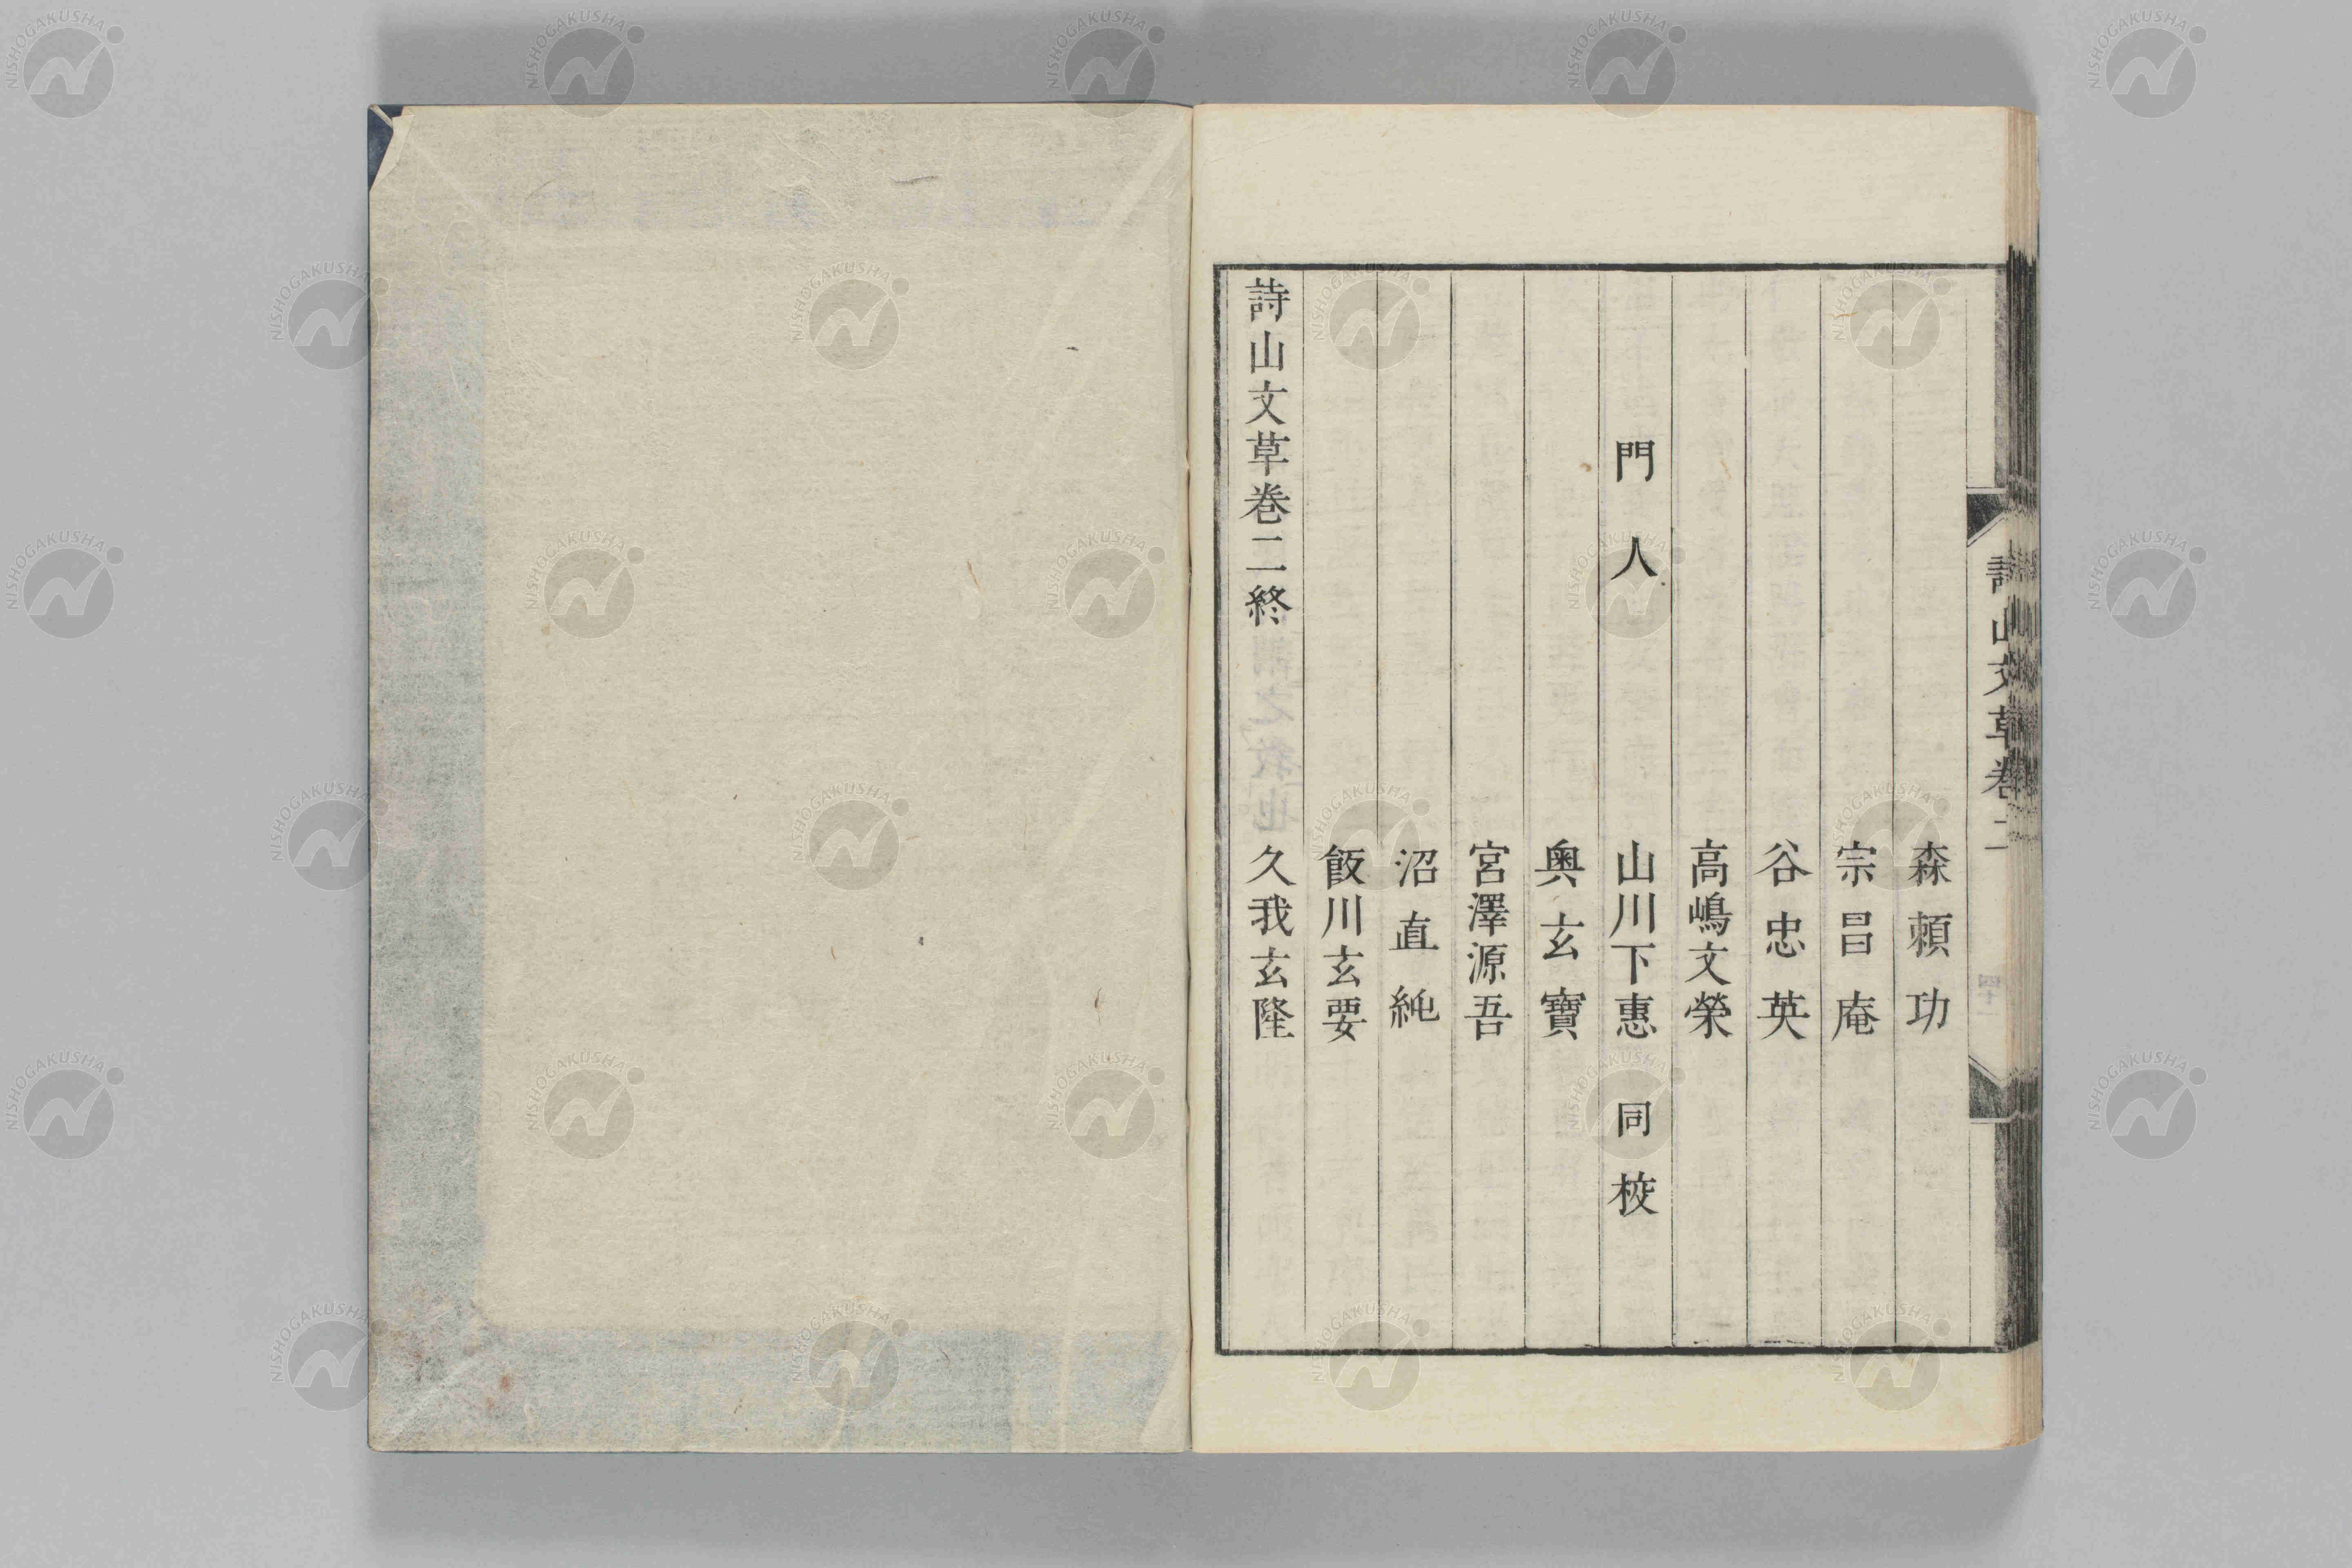 詩山文草卷二
森頼功
宗昌庵
谷忠英
高嶋文榮
門人 山川下惠 同校
奧玄寶
宮澤源吾
沼直純
飯川玄要
詩山文草巻二終 久我玄隆
NISHOGAKUSHA